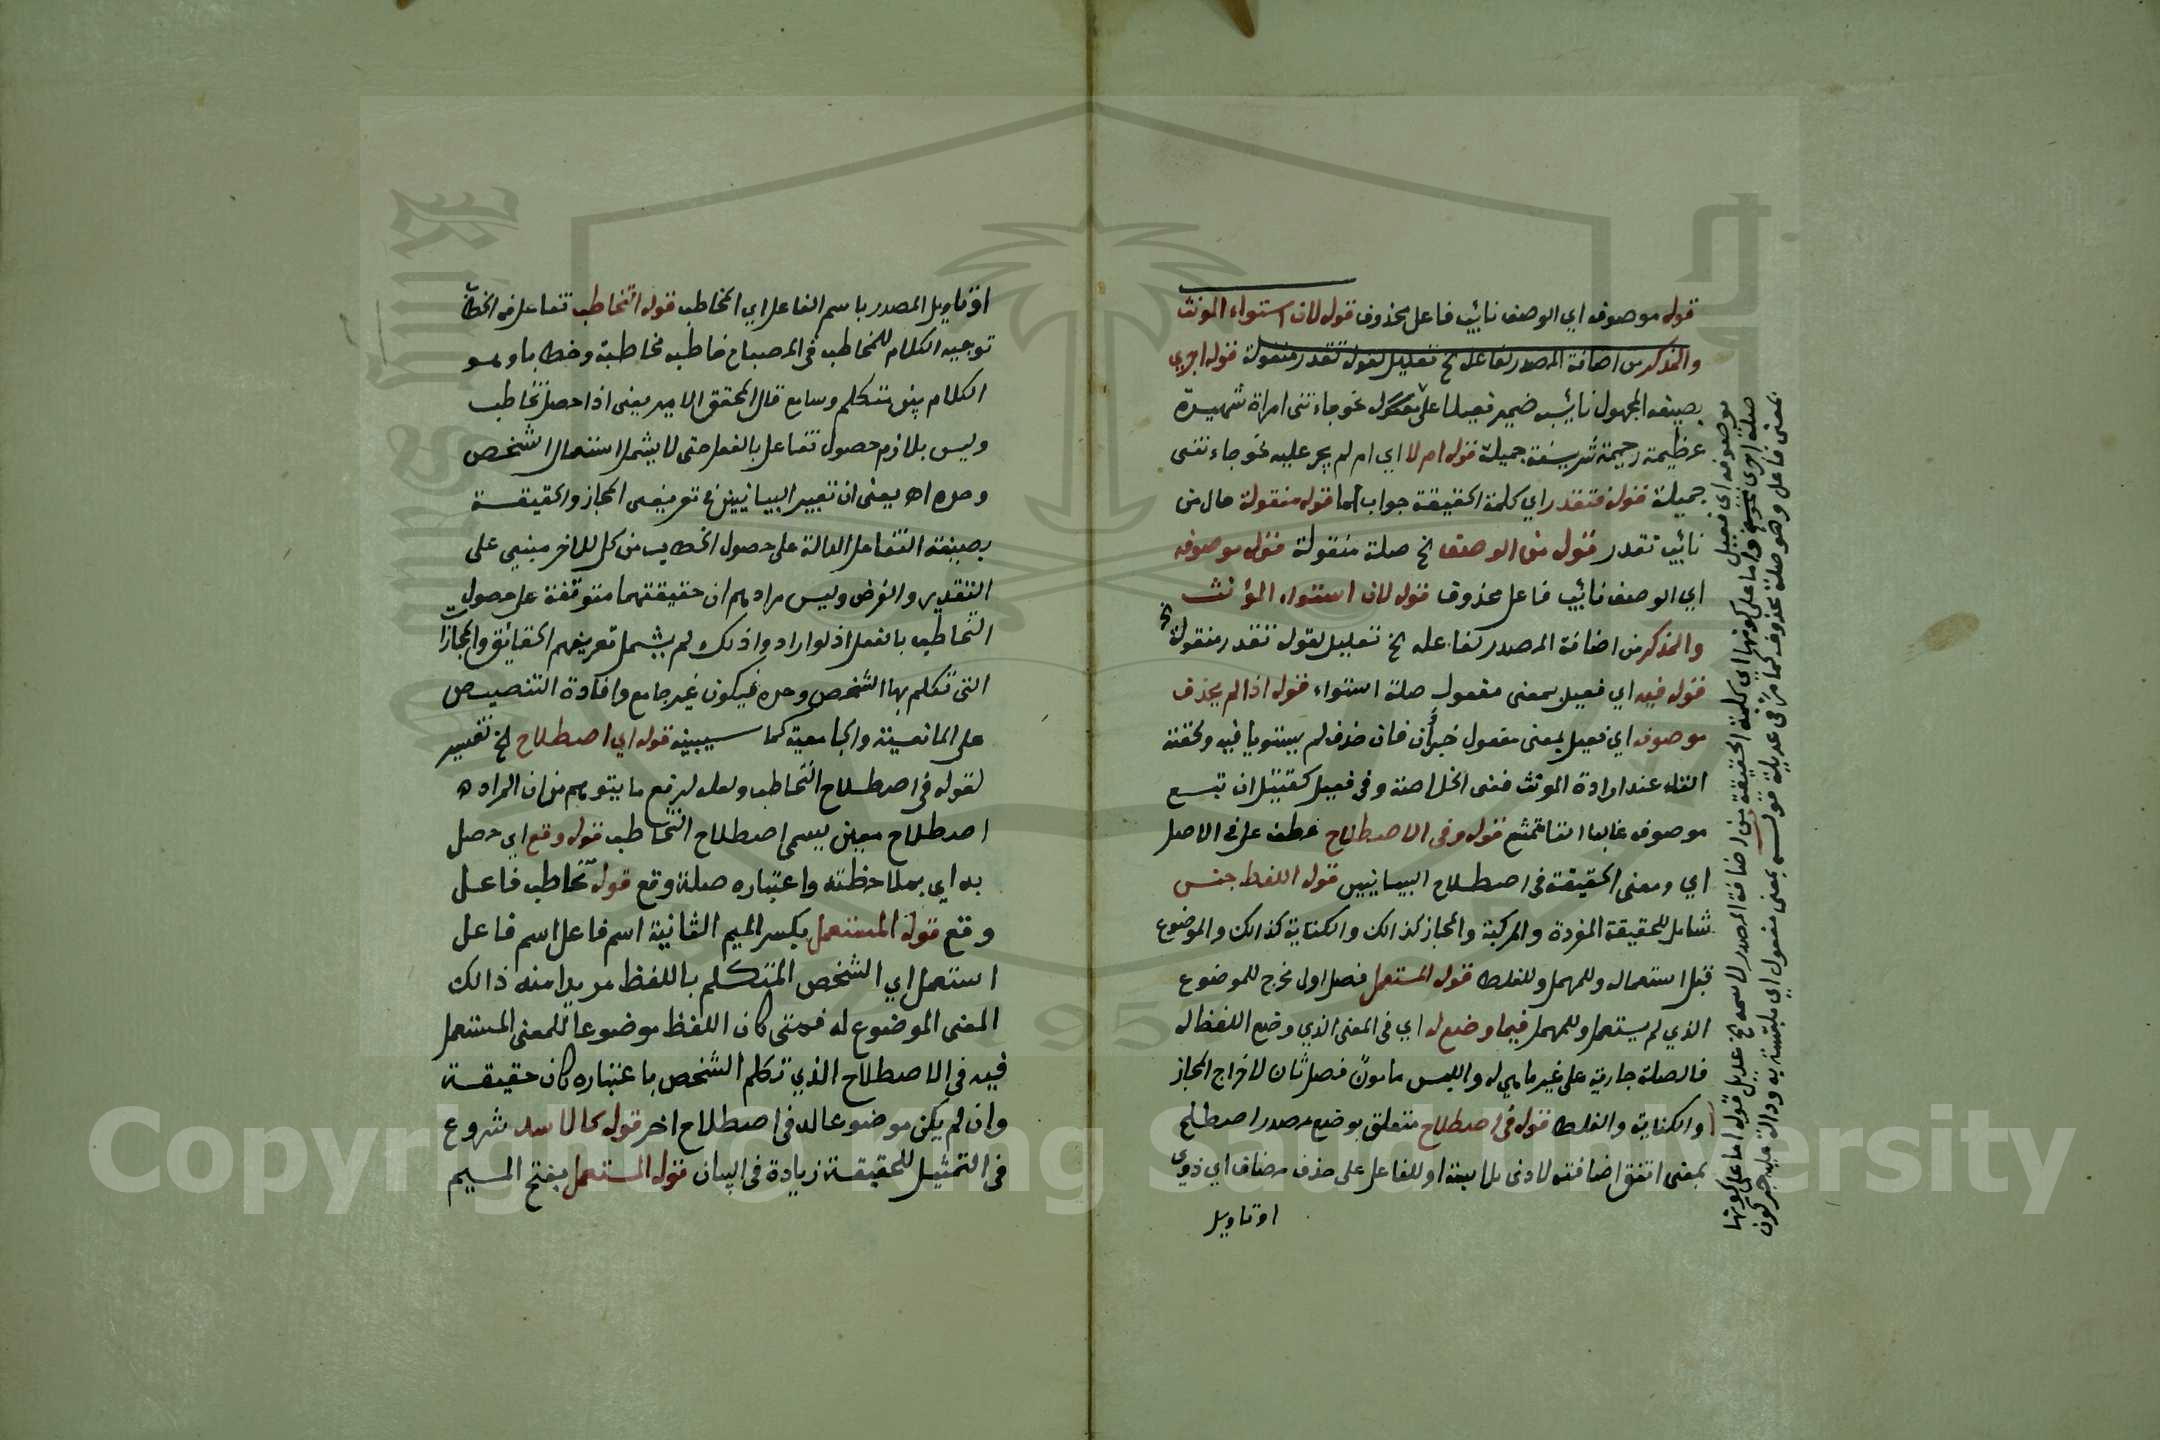 قوله موصوفه اي الوصف نائب فاعل محذوف قوله لان استواء المونث
والمذكر من اضافة المصدر لفاعله الخ تعليل لقوله تقدر منقولة قوله اجري
بصيغة المجهول نائب ضمير فعيلا على نحو جاءتنى امراة شهيرة
عظيمة رحيمة شريفة جميلة قوله ام لا اي ام لم يجر عليه نحو جاءتنى
جميلة قوله فتقدر اي كلمة الحقيقة جواب اما قوله منقولة حال من
نائب تقدر قوله من الوصف الخ صلة منقولة قوله موصوفه
اي الوصف نائب فاعل محذوف قوله لان استواء المؤنث
والمذكر من اضافة المصدر لفاعله الخ تعليل لقوله تقدر منقولة الخ
قوله فيه اي فعيل بمعنى مفعول صلة استواء قوله اذا لم يحذف
موصوفه اي فعيل بمعنى مفعول خبر أن فان حذف لم يستويا فيه ولحقته
التاء عند ارادة المونث ففى الخلاصة وفى فعيل كقتيل ان تبع
موصوفه غالبا التا تمتنع قوله وفى الاصطلاح عطف على فى الاصل
اي ومعنى الحقيقة فى اصطلاح البيانيين قوله اللفظ جنس
شامل للحقيقة المفردة والمركبة والمجاز كذالك والكناية كذالك والموضوع
قبل استعماله وللمهمل وللغلط قوله المستعمل فصل اول مخرج للموضوع
الذي لم يستعمل وللمهمل فيما وضع له اي فى المعنى الذي وضع اللفظ له
فالصلة جارية على غير ما هي له واللبس مامون فصل ثان لاخراج المجاز
والكناية والغلط قوله فى اصطلاح متعلق بوضع مصدر اصطلح
بمعنى اتفق اضافته لادنى ملابسة او للفاعل على حذف مضاف اي ذوي
او تاويل
موصوفه اي فعيل
بمعنى فاعل وهو صلة محذوف
قوله اما على كونها
بمعنى مفعول اي ملتبسة به
او تاويل المصدر باسم الفاعل اي المخاطب قوله التخاطب تفاعل من الخطاب
توجيه الكلام للمخاطب فى المصباح خاطبه مخاطبة وخطابا وهو
الكلام بين متكلم وسامع قال المحقق الامير يعنى اذا حصل تخاطب
وليس بلازم حصول تفاعل بالفعل حتى لا يشمل استعمال الشخص
وحده اه يعنى ان تعبير البيانيين فى تعريفى المجاز والحقيقة
بصيغة التفاعل الدالة على حصول الخطاب من كل للاخر مبني على
التقدير والفرض وليس مرادهم ان حقيقتهما متوقفة على حصول
التخاطب بالفعل اذ لو ارادوا ذلك لم يشمل تعريفهم الحقائق والمجازات
التى تكلم بها الشخص وحده فيكون غير جامع وافادة التنصيص
على المانعية والجامعية كما سيبينه قوله اي اصطلاح الخ تفسير
لقوله فى اصطلاح التخاطب ولعله لدفع ما يتوهم من ان المراد
اصطلاح معين يسمى اصطلاح التخاطب قوله وقع اي حصل
به اي بملاحظته واعتباره صلة وقع قوله تخاطب فاعل
وقع قوله المستعمل بكسر الميم الثانية اسم فاعل اسم فاعل
استعمل اي الشخص المتكلم باللفظ مريدا منه ذالك
المعنى الموضوع له فمتى كان اللفظ موضوعا للمعنى المستعمل
فيه فى الاصطلاح الذي تكلم الشخص باعتباره كان حقيقة
وان لم يكن موضوعا له فى اصطلاح اخر قوله كالاسد شروع
فى التمثيل للحقيقة زيادة فى البيان قوله المستعمل بفتح الميم
Copyright © King Saud University